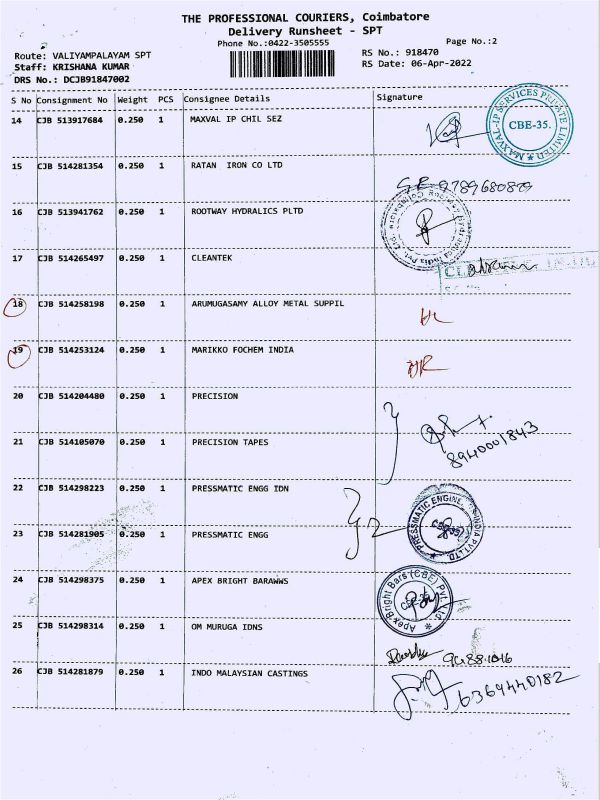 THE PROFESSIONAL COURIERS, Coimbatore
Delivery Runsheet - SPT
Phone No.:0422-3505555
Page No.:2
Route: VALIYAMPALAYAM SPT
RS No.: 918470
Staff: KRISHANA KUMAR
RS Date: 06-Apr-2022
DRS No.: DCJB91847002
S No Consignment No Weight PCS Consignee Details Signature
14 CJB 513917684 0.250 1 MAXVAL IP CHIL SEZ
MAXVAL-IP SERVICES PRIVATE LIMITED
CBE-35.
15 CJB 514281354 0.250 1 RATAN IRON CO LTD
9789680879
16 CJB 513941762 0.250 1 ROOTWAY HYDRALICS PLTD
17 CJB 514265497 0.250 1 CLEANTEK
18 CJB 514258198 0.250 1 ARUMUGASAMY ALLOY METAL SUPPIL
19 CJB 514253124 0.250 1 MARIKKO FOCHEM INDIA
20 CJB 514204480 0.250 1 PRECISION
21 CJB 514105070 0.250 1 PRECISION TAPES
8940001843
22 CJB 514298223 0.250 1 PRESSMATIC ENGG IDN
2
PRESSMATIC ENGINE. INDIA PVT LTD
23 CJB 514281905 0.250 1 PRESSMATIC ENGG
24 CJB 514298375 0.250 1 APEX BRIGHT BARAWWS
Apex Bright Bars (CBE) Pvt. Ltd.
25 CJB 514298314 0.250 1 OM MURUGA IDNS
26 CJB 514281879 0.250 1 INDO MALAYSIAN CASTINGS
6364440182